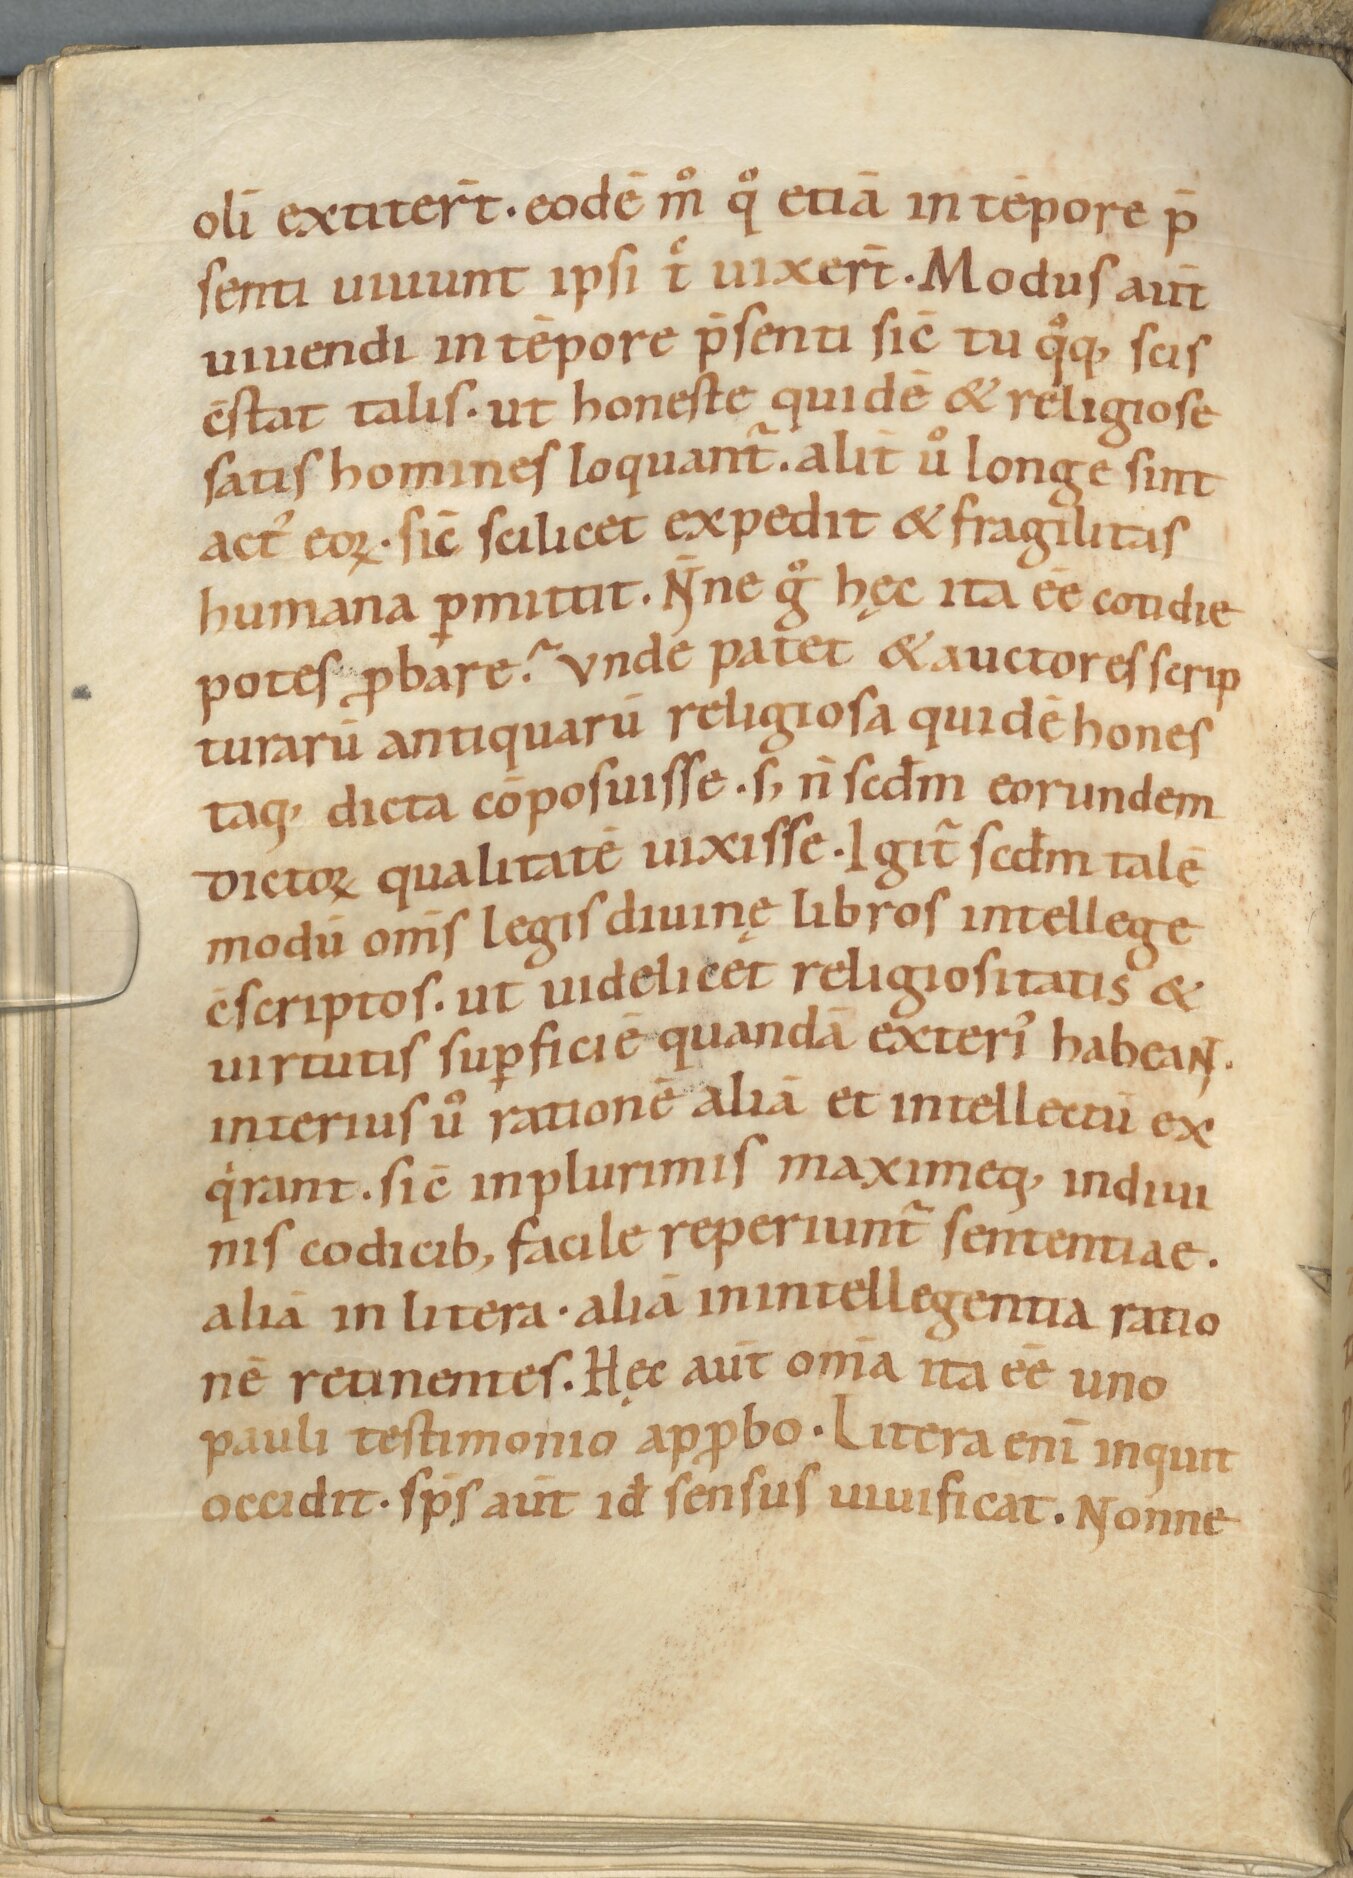 olī extiter̄t. eodē mͦ qͦ etiā in tēpore p̄
senti uiuunt ipsi tͨ uixer̄t. Modus aūt
uiuendi in tēpore p̄senti sic̄ tu qͦq, scis
c̄stat talis. ut honeste quidē & religiose
satis homines loquant᷑. alit̄ uͦ longe sint
act᾿ eoꝝ. sic̄ scilicet expedit & fragilitas
humana ꝑmittit. N̄ne gͦ hęc ita ēē cotidie
potes ꝓbare? Vnde patet & auctores scrip
turarū antiquarū religiosa quidē hones
taq, dicta cōposuisse. s, n̄ scd̄m eorundem
dictoꝝ qualitatē uixisse. Igit᷑ scd̄m talē
modū om̄s legis diuinę libros intellege
c̄scriptos. ut uidelicet religiositatis &
uirtutis suꝑficiē quandā exteri᾿ habeant.
interius uͦ rationē aliā et intellectū ex
qͥrant. sic̄ in plurimis maximeq, in diui
nis codicib, facile reperiunt᷑ sententiae.
aliā in litera. aliā in intellegentia ratio
nē retinentes. Hęc aūt om̄a ita ēē uno
pauli testimonio apꝓbo. Litera enī inquit
occidit. sp̄s aūt id̄ sensus uiuificat. Nonne